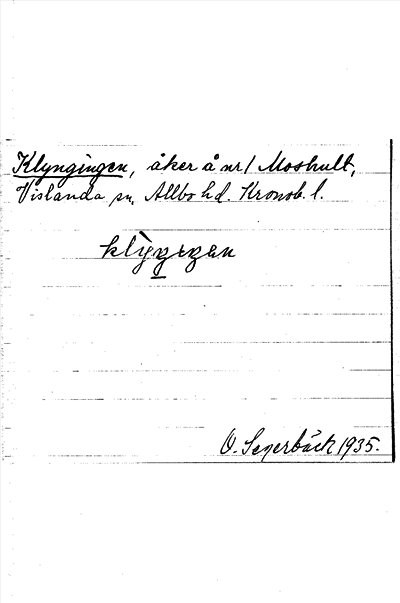 Klyngingen, åker å nr 1 Moshult,
Vislanda sn, Allbo hd. Kronob. l.
O. Segerbäck 1935.